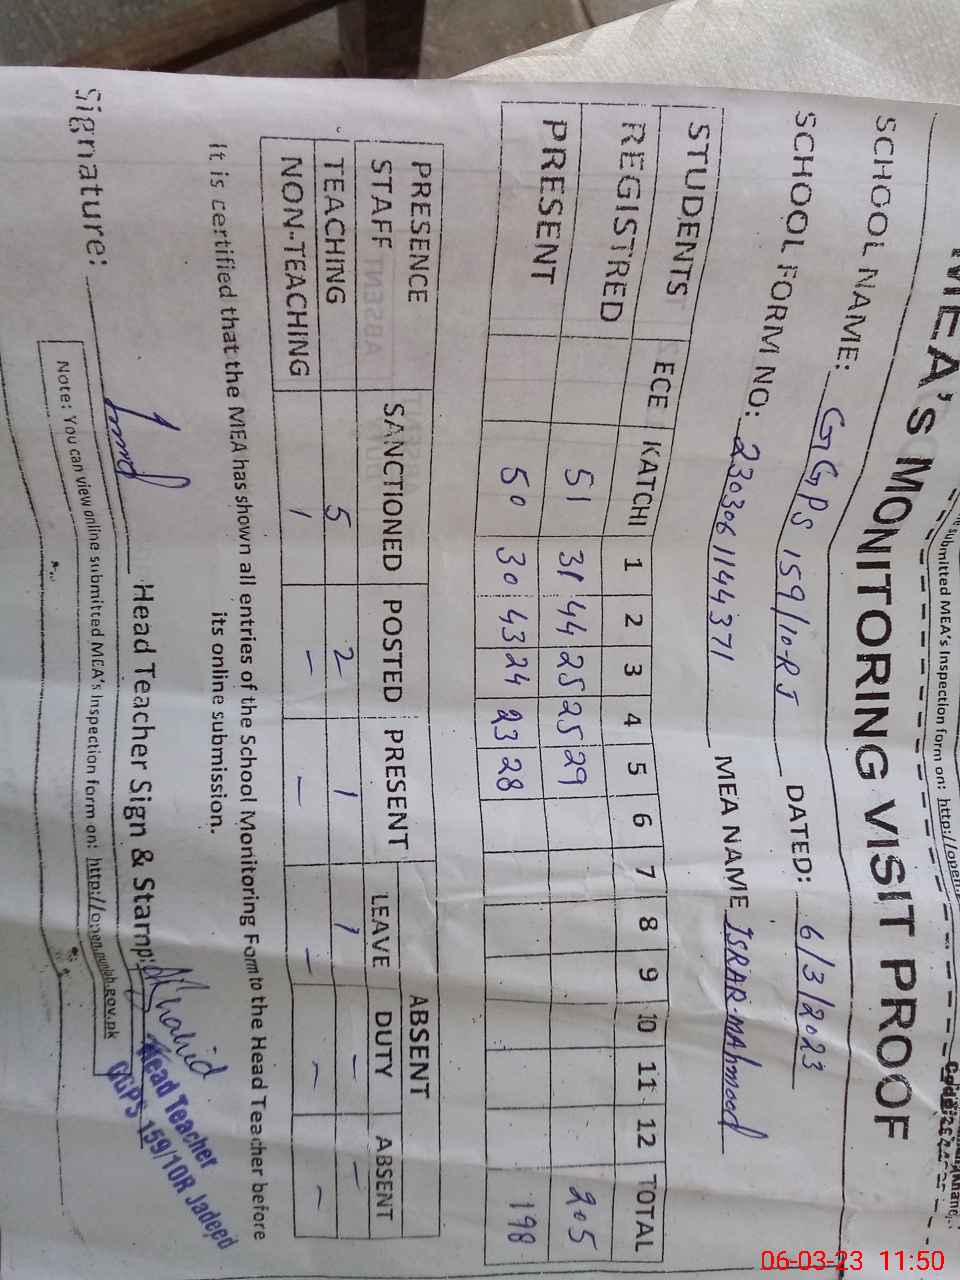 submitted MEA's Inspection form on: http://open.p
MEA's MONITORING VISIT PROOF
SCHOOL NAME: GGPS 159/10-RJ DATED: 6/3/2023
SCHOOL FORM NO: 2303061144371 MEA NAME ISRAR MAhmood
STUDENTS ECE KATCHI 1 2 3 4 5 6 7 8 9 10 11 12 TOTAL
REGISTRED 51 31 44 25 25 29 205
PRESENT 50 30 43 24 23 28 198
PRESENCE SANCTIONED POSTED PRESENT ABSENT
STAFF LEAVE DUTY ABSENT
TEACHING 5 2 1 1 - -
NON-TEACHING 1 - - - - -
It is certified that the MEA has shown all entries of the School Monitoring Form to the Head Teacher before
its online submission.
Signature: Head Teacher Sign & Stamp:
Head Teacher
GGPS 159/10R Jadeed
Note: You can view online submitted MEA's Inspection form on: http://open.punjab.gov.pk
06-03-23 11:50